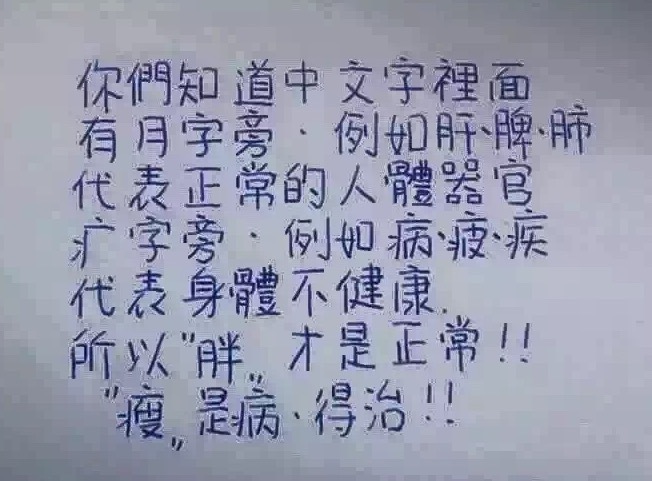 你們知道中文字裡面
有月字旁．例如肝．脾．肺
代表正常的人體器官
疒字旁．例如病．疲．疾
代表身體不健康．
所以"胖"才是正常!!
"瘦"是病．得治!!